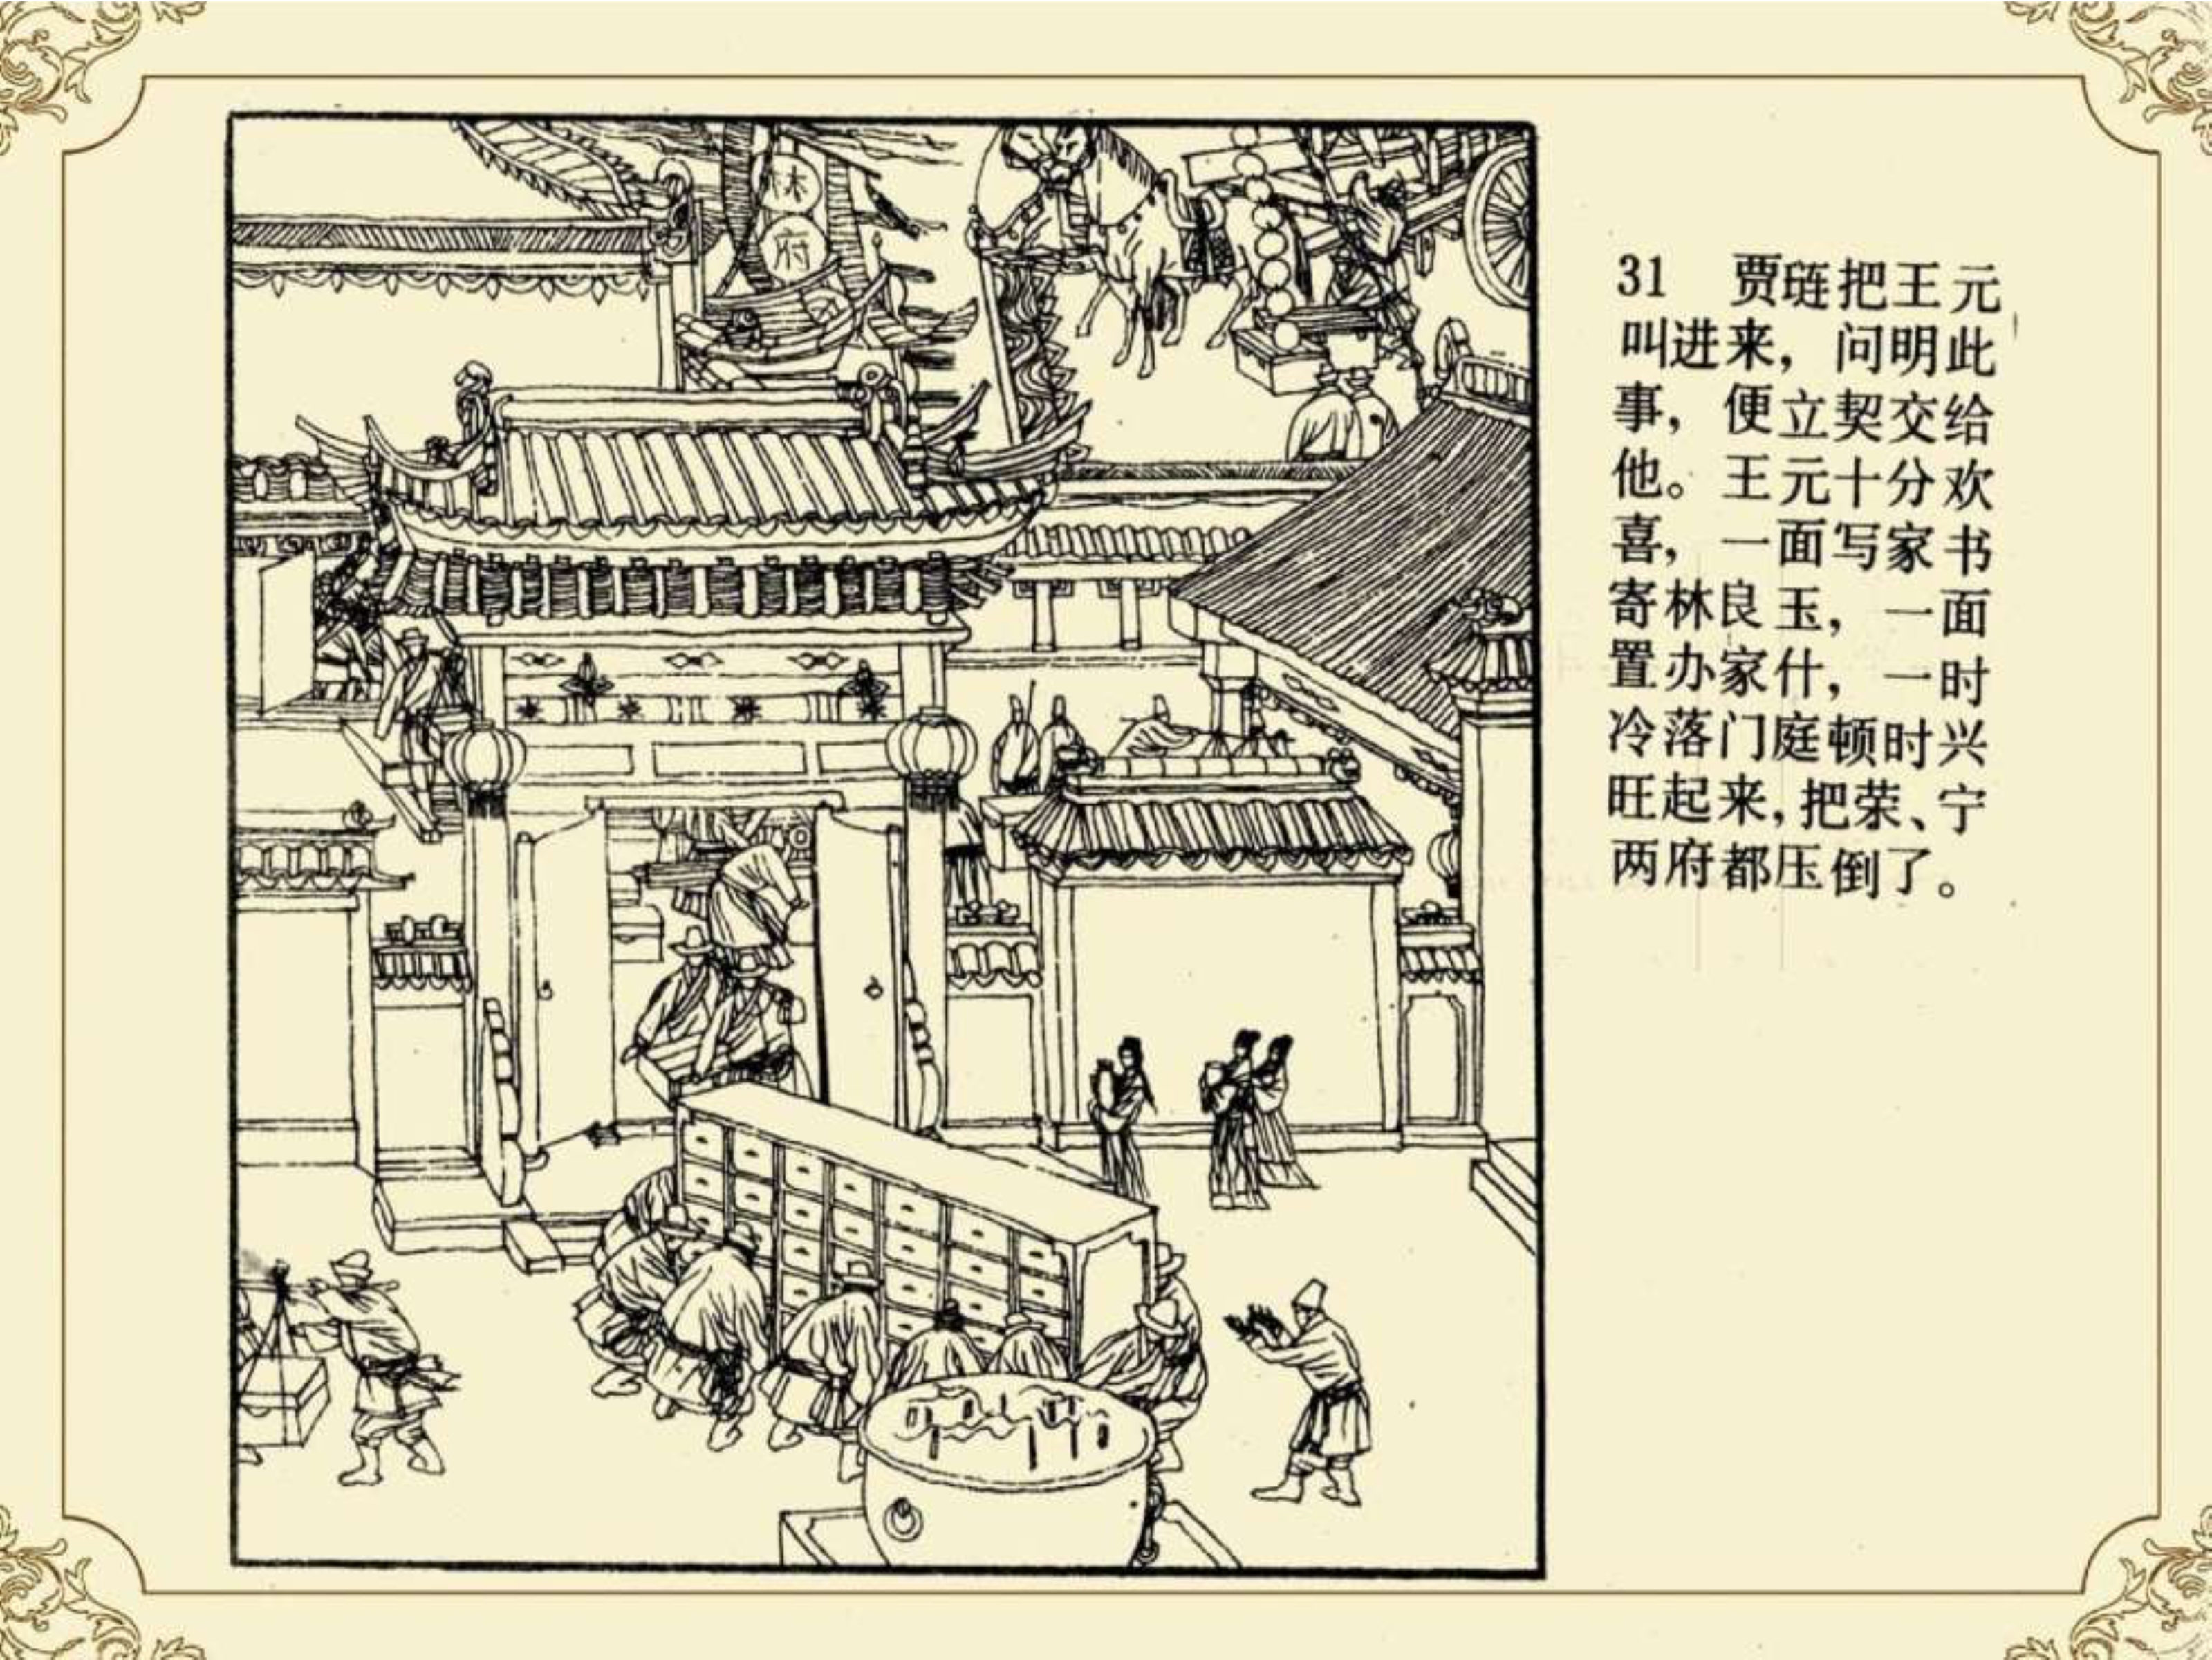 林
府
31 贾琏把王元
叫进来，问明此
事，便立契交给
他。王元十分欢
喜，一面写家书
寄林良玉，一面
置办家什，一时
冷落门庭顿时兴
旺起来，把荣、宁
两府都压倒了。